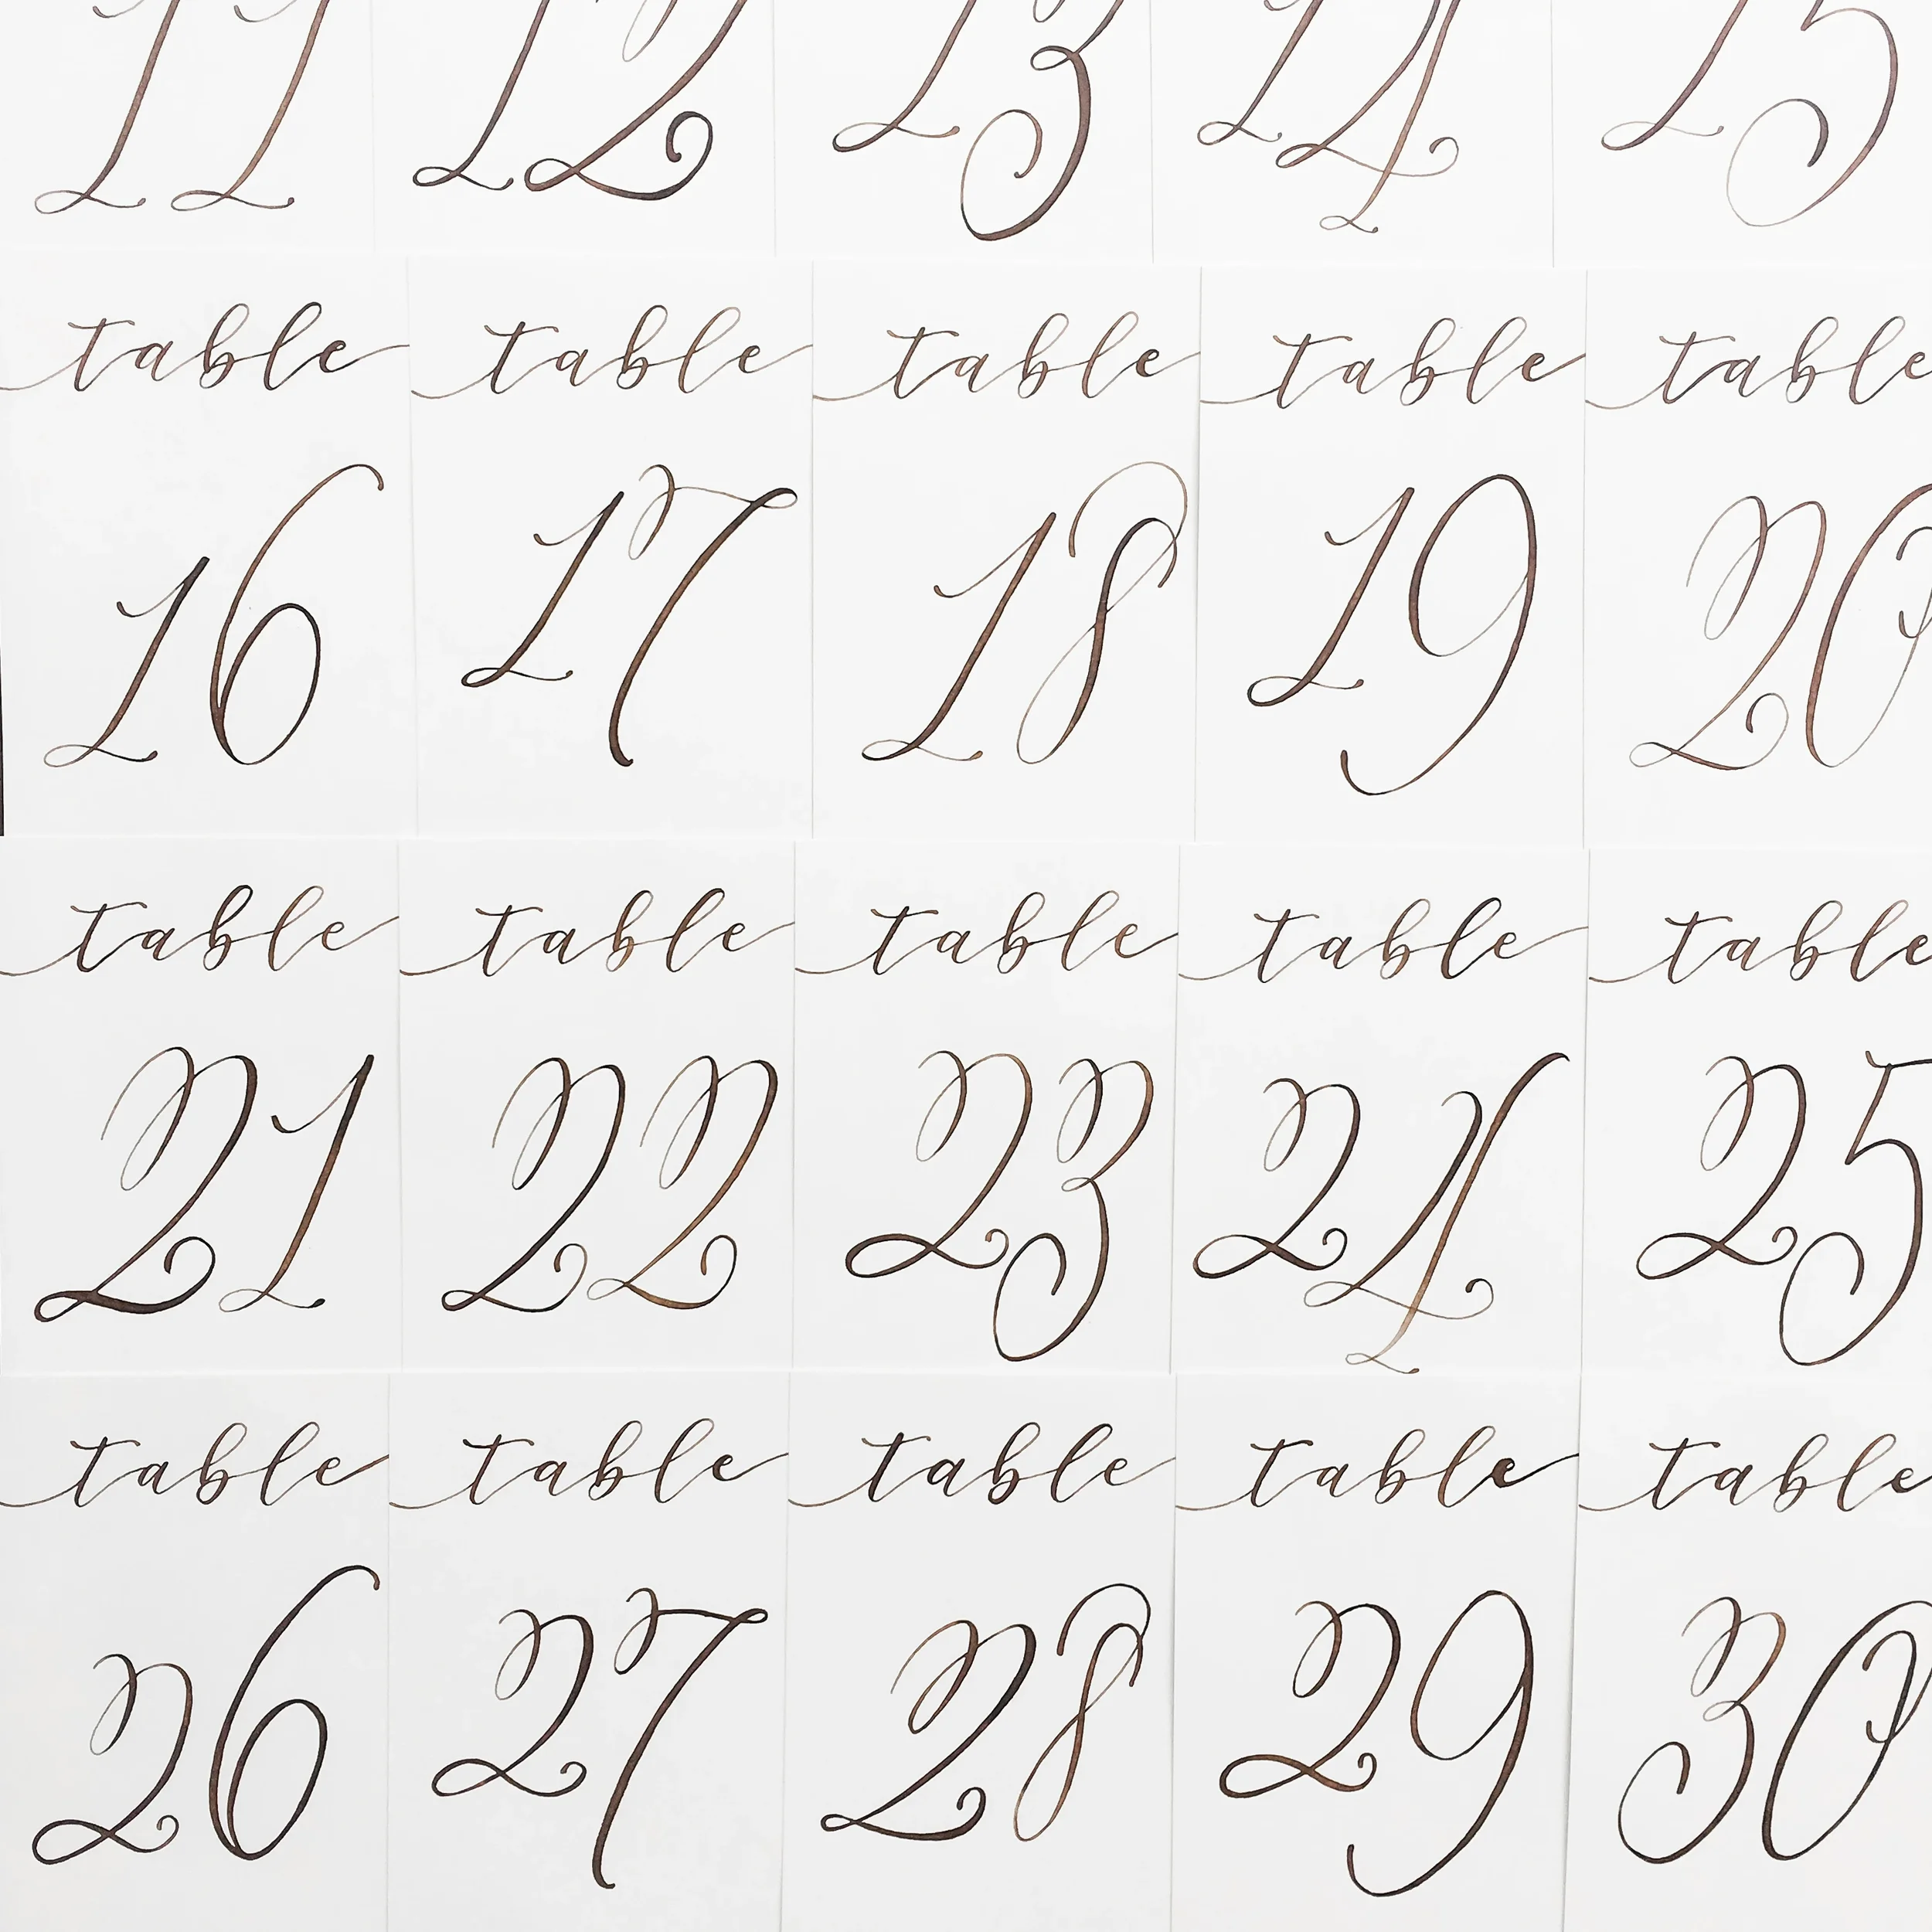 11 12 13 14 15
table table table table table
16 17 18 19 20
table table table table table
21 22 23 24 25
table table table table table
26 27 28 29 30